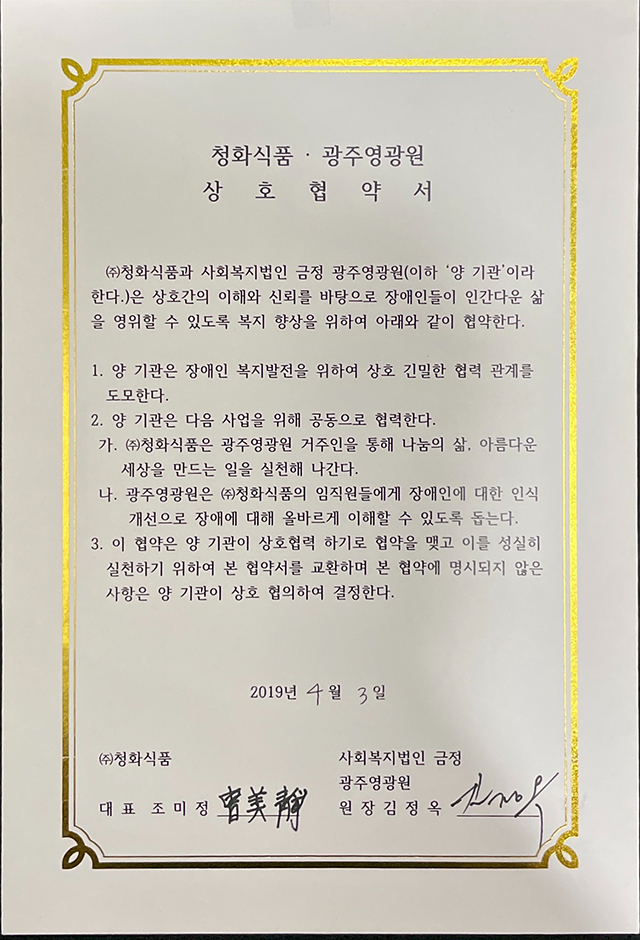 청화식품 · 광주영광원
상 호 협 약 서
㈜청화식품과 사회복지법인 금정 광주영광원(이하 '양 기관'이라
한다.)은 상호간의 이해와 신뢰를 바탕으로 장애인들이 인간다운 삶
을 영위할 수 있도록 복지 향상을 위하여 아래와 같이 협약한다.
1. 양 기관은 장애인 복지발전을 위하여 상호 긴밀한 협력 관계를
도모한다.
2. 양 기관은 다음 사업을 위해 공동으로 협력한다.
가. ㈜청화식품은 광주영광원 거주인을 통해 나눔의 삶, 아름다운
세상을 만드는 일을 실천해 나간다.
나. 광주영광원은 ㈜청화식품의 임직원들에게 장애인에 대한 인식
개선으로 장애에 대해 올바르게 이해할 수 있도록 돕는다.
3. 이 협약은 양 기관이 상호협력 하기로 협약을 맺고 이를 성실히
실천하기 위하여 본 협약서를 교환하며 본 협약에 명시되지 않은
사항은 양 기관이 상호 협의하여 결정한다.
2019년 4월 3일
㈜청화식품
대표 조미정 曺美靜
사회복지법인 금정
광주영광원
원장김정옥 김정옥